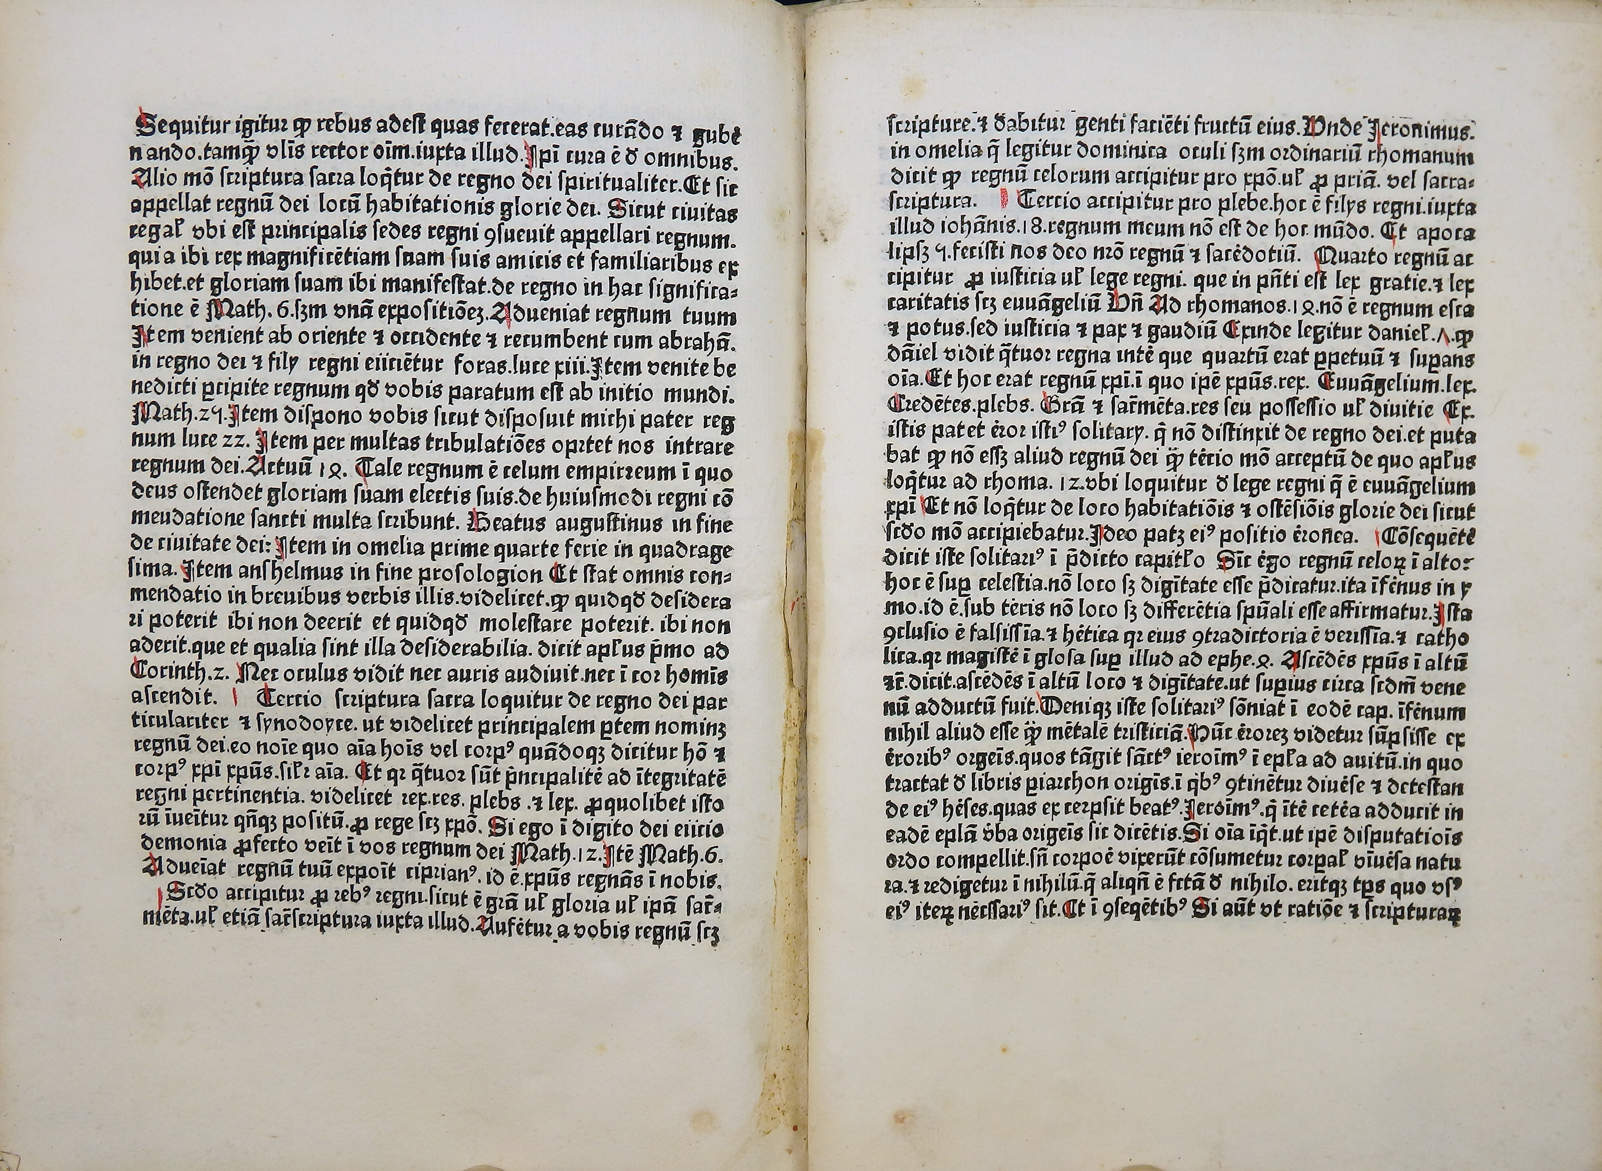 Sequitur igitur ꝙ rebus adest quas fecerat.eas curādo ⁊ gubē
nando.tamꝙ̄ vlīs rector oīm.iuxta illud.Ipī cura ē ď omnibus.
Alio mō scriptura sacra loq̄tur de regno dei spiritualiter.Et sic
appellat regnū dei locū habitationis glorie dei. Sicut ciuitas
regaƚ vbi est principalis sedes regni ꝯsueuit appellari regnum.
quia ibi rex magnificētiam suam suis amicis et familiaribus ex
hibet.et gloriam suam ibi manifestat.de regno in hac significa⸗
tione ē Math. 6.sꝫm vnā expositiōeꝫ.Adueniat regnum tuum
Item venient ab oriente ⁊ occidente ⁊ recumbent cum abrahā.
in regno dei ⁊ filÿ regni eiiciētur foras.luce xiii.Item venite be
nedicti ꝑcipite regnum qđ vobis paratum est ab initio mundi.
Math.25.Item dispono vobis sicut disposuit michi pater reg
num luce 22. Item per multas tribulatiōes oꝑtet nos intrare
regnum dei.Actuū 18. Tale regnum ē celum empirreum ī quo
deus ostendet gloriam suam electis suis.de huiusmodi regni cō
mendatione sancti multa scribunt. Beatus augustinus in fine
de ciuitate dei: Item in omelia prime quarte ferie in quadrage
sima. Item anshelmus in fine prosologion Et stat omnis con⸗
mendatio in breuibus verbis illis.videlicet.ꝙ quidqđ desidera
ri poterit ibi non deerit et quidqđ molestare poterit. ibi non
aderit.que et qualia sint illa desiderabilia. dicit apƚus p̄mo ad
Corinth.2. Nec oculus vidit nec auris audiuit.nec ī cor homīs
ascendit. Tercio scriptura sacra loquitur de regno dei par
ticulariter ⁊ synodoyce. ut videlicet principalem ꝑtem nominꝫ
regnū dei.eo noīe quo aīa hoīs vel corpꝰ quādoqꝫ dicitur hō ⁊
corpꝰ xpī xpūs.siƚr aīa. Et qr q̄tuor sūt p̄ncipalitē ad ītegritatē
regni pertinentia. videlicet rex.res. plebs .⁊ lex. ꝓquolibet isto
rū īueītur qn̄qꝫ positū.ꝓ rege scꝫ xpō. Si ego ī digito dei eiicio
demonia ꝓfecto veīt ī vos regnum dei Math.12.Itē Math.6.
Adueīat regnū tuū expoīt ciprianꝰ. id ē.xpūs regnās ī nobis.
Scđo accipitur ꝓ rebꝰ regni.sicut ē grā uƚ gloria uƚ ipā sac̄⸗
mēta.uƚ etiā sac̄scriptura iuxta illud.Aufētur a vobis regnū scꝫ
scripture.⁊ dabitur genti faciēti fructū eius.Vnde Jeronimus.
in omelia q̄ legitur dominica oculi sꝫm ordinariū rhomanum
dicit ꝙ regnū celorum accipitur pro xpō.uƚ ꝓ priā. vel sacra⸗
scriptura. Tercio accipitur pro plebe.hoc ē filÿs regni.iuxta
illud iohānis.18.regnum meum nō est de hoc mūdo. Et apoca
lipsꝫ 5.fecisti nos deo nrō regnū ⁊ sacēdotiū. Quarto regnū ac
cipitur ꝓ iusticia uƚ lege regni. que in pn̄ti est lex gratie.⁊ lex
caritatis scꝫ euuāgeliū Vn̄ Ad rhomanos.18.nō ē regnum esca
⁊ potus.sed iusticia ⁊ pax ⁊ gaudiū Exinde legitur danieƚ.7.ꝙ
dāiel vidit q̄tuor regna intē que quartū erat ꝑpetuū ⁊ suꝑans
oīa.Et hoc erat regnū xpī.ī quo ipē xpūs.rex. Euuāgelium.lex.
Credētes.plebs. Grā ⁊ sac̄mēta.res seu possessio uƚ diuitie Ex.
istis patet ēror istiꝰ solitarÿ. q̄ nō distinxit de regno dei.et puta
bat ꝙ nō essꝫ aliud regnū dei ꝙ̄ tēcio mō acceptū de quo apƚus
loq̄tur ad rhoma. 12.vbi loquitur ď lege regni q̄ ē euuāgelium
xpī Et nō loq̄tur de loco habitatiōis ⁊ ostēsiōis glorie dei sicut
scđo mō accipiebatur.Ideo patꝫ eiꝰ positio ēronea. Cōsequētē
dicit iste solitariꝰ ī p̄dicto capitƚo Sic ēgo regnū celoꝝ ī alto:
hoc ē suꝑ celestia.nō loco sꝫ digītate esse p̄dicatur.ita īfēnus in ÿ
mo.id ē.sub tēris nō loco sꝫ differētia spūali esse affirmatur.Ista
ꝯclusio ē falsissīa.⁊ hētica qr eius ꝯtradictoria ē verissīa.⁊ catho
lica.qr magistē ī glosa suꝑ illud ad ephe.8. Ascēdēs xpūs ī altū
⁊c̄.dicit.ascēdēs ī altū loco ⁊ digītate.ut suꝑius circa scdm̄ vene
nū adductū fuit.Deniqꝫ iste solitariꝰ sōniat ī eodē cap. īfēnum
nihil aliud esse ꝙ̄ mētalē tristiciā.Nūc ērorez videtur sūpsisse ex
ēroribꝰ orgeīs.quos tāgit sāctꝰ ieroīmꝰ ī epƚa ad auitū.in quo
tractat ď libris ꝑiarchon origīs.ī qb̄ꝰ ꝯtinētur diuēse ⁊ detestan
de eiꝰ hēses.quas ex cerpsit beatꝰ.Jeroīmꝰ.q̄ itē cetēa adducit in
eadē eplā v̄ba origeīs sic dicētis.Si oīa īq̄t.ut ipē disputatioīs
ordo compellit.sn̄ corpoē vixerūt cōsumetur corpaƚ vīuēsa natu
ra.⁊ redigetur ī nihilū.q̄ aliqn̄ ē fctā ď nihilo. eritqꝫ tp̄s quo vsꝰ
eiꝰ iteꝝ nēcssariꝰ sit.Et ī ꝯseqētibꝰ Si aūt vt ratiōe ⁊ scripturaꝝ